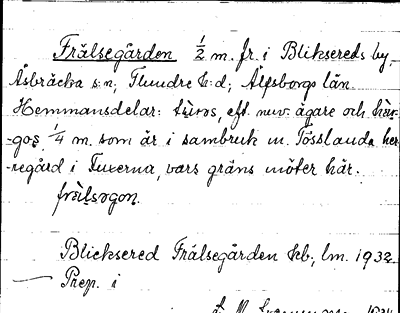 Frälsegården 1/2 m. fr. i Bliksereds by,
Åsbräcka s:n, Flundre h:d, Älfsborgs län.
Hemmansdelar: tùros, eft. nuv. ägare och hær-
-gos 1/4 m. som är i sambruk m. Tösslanda her-
-regård i Fuxerna, vars gräns möter här.
frälsogon.
Blicksered Frälsegården hb., lm. 1932
Prep. i